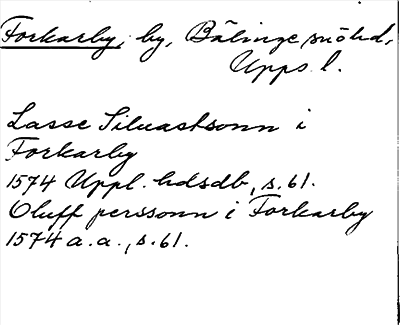 Forkarby, by, Bälinge snöhd,
Upps. l.
Lasse Siluastsonn i
Forkarby
1574 Uppl. hdsdb, s. 61.
Oluff perssonn i Forkarby
1574 a. a., s. 61.